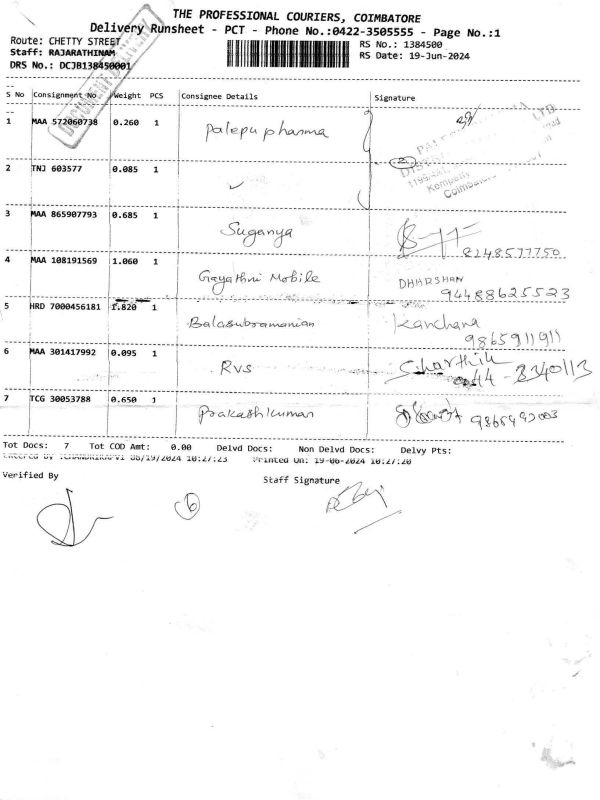 THE PROFESSIONAL COURIERS, COIMBATORE
Delivery Runsheet - PCT - Phone No.:0422-3505555 - Page No.:1
Route: CHETTY STREET
RS No.: 1384500
Staff: RAJARATHINAM
RS Date: 19-Jun-2024
DRS No.: DCJB138450001
DOCUMENT DELIVERY
S No Consignment No. Weight PCS Consignee Details Signature
1 MAA 572060738 0.260 1 Palepu pharma
2 TNJ 603577 0.085 1 ✓
Coimbatore
3 MAA 865907793 0.685 1 Suganya
8248577750
4 MAA 108191569 1.060 1 Gayathri Mobile DHARSHAN
94488625523
5 HRD 7000456181 1.820 1 Balasubramanian Kanchana
9865911911
6 MAA 301417992 0.095 1 RVS
8340113
7 TCG 30053788 0.650 1 Prakashkumar
Tot Docs: 7 Tot COD Amt: 0.00 Delvd Docs: Non Delvd Docs: Delvy Pts:
06/19/2024 10:27:23 Printed On: 19-06-2024 10:27:20
Verified By Staff Signature
6